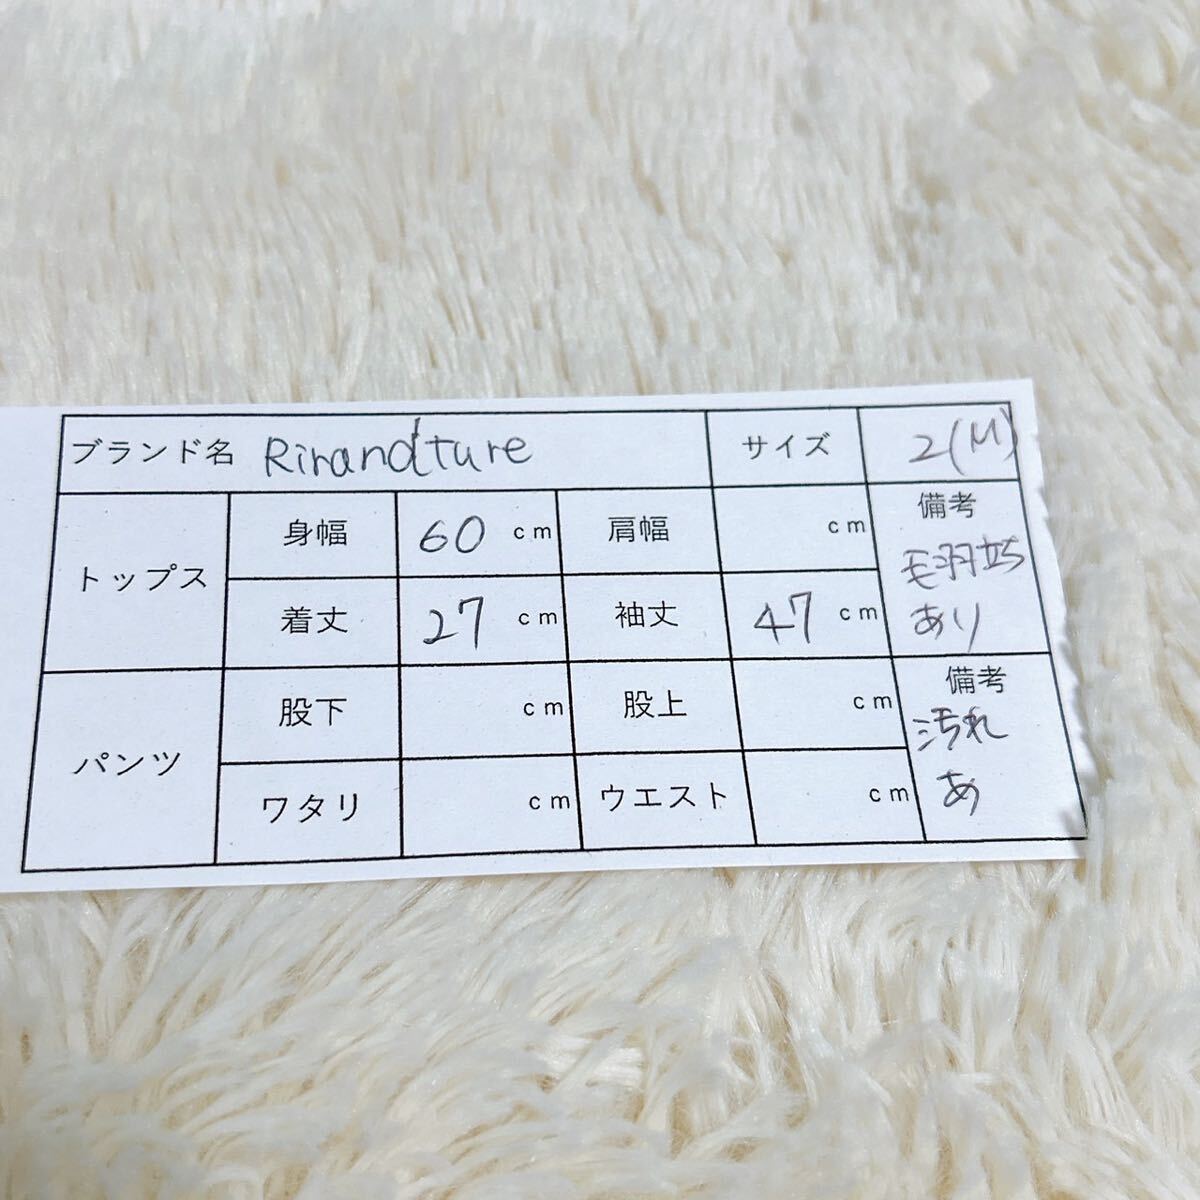 ブランド名 Rirandture サイズ 2(M)
トップス 身幅 60 cm 肩幅 cm 備考
毛羽立ち
あり
着丈 27 cm 袖丈 47 cm
パンツ 股下 cm 股上 cm 備考
汚れ
あ
ワタリ cm ウエスト cm